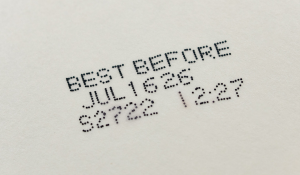 BEST BEFORE
JUL1626
S2722 12:27